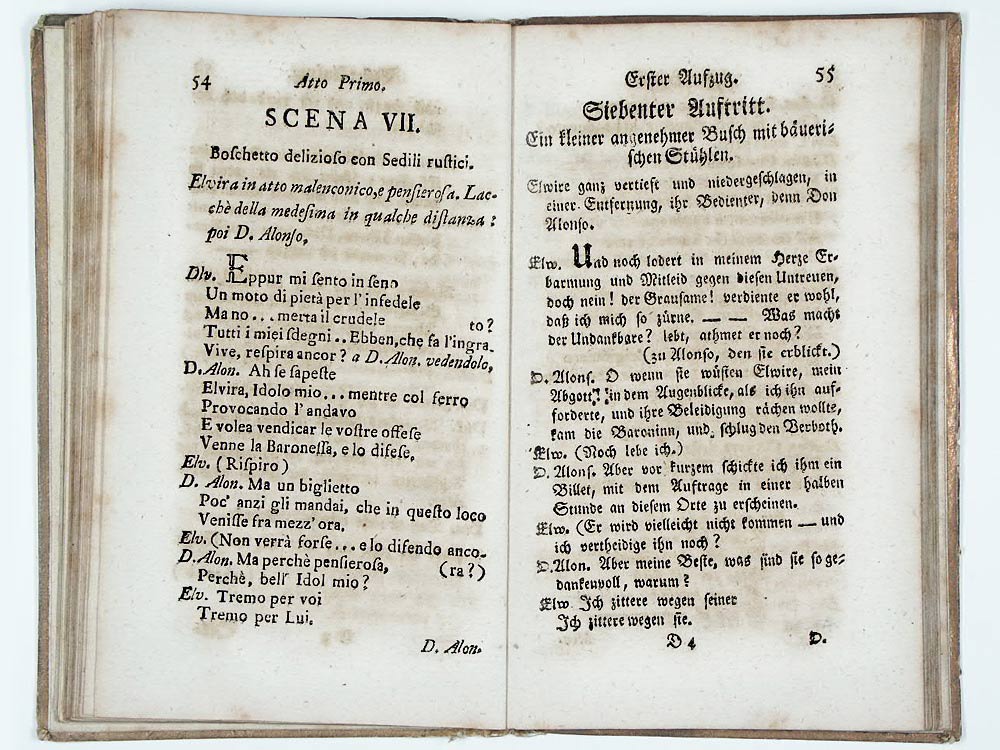 54 Atto Primo.
SCENA VII.
Boſchetto delizioſo con Sedili ruſtici.
Elvira in atto malenconico, e penſieroſa. Lac-
chè della medeſima in qualche diſtanza :
poi D. Alonſo,
Dlv. Eppur mi ſento in ſeno
Un moto di pietà per l' infedele
Ma no . . . merta il crudele to?
Tutti i miei ſdegni . . Ebben, che fa l'ingra.
Vive, reſpira ancor? a D. Alon. vedendolo,
D. Alon. Ah ſe ſapeſte
Elvira, Idolo mio . . . mentre col ferro
Provocando l' andavo
E volea vendicar le voſtre offeſe
Venne la Baroneſſa, e lo difeſe,
Elv. (Riſpiro)
D. Alon. Ma un biglietto
Poc' anzi gli mandai, che in queſto loco
Veniſſe fra mezz' ora,
Elv. (Non verrà forſe . . . e lo difendo anco-
D. Alon. Ma perchè penſieroſa, (ra?)
Perchè, bell' Idol mio?
Elv. Tremo per voi
Tremo per Lui.
D. Alon.
Erſter Aufzug. 55
Siebenter Auftritt.
Ein kleiner angenehmer Buſch mit bäueri-
ſchen Stühlen.
Elwire ganz vertieft und niedergeſchlagen, in
einer Entfernung, ihr Bedienter, denn Don
Alonſo.
Elw. Und noch lodert in meinem Herze Er-
barmung und Mitleid gegen dieſen Untreuen,
doch nein! der Grauſame! verdiente er wohl,
daß ich mich ſo zürne. — — Was macht
der Undankbare? lebt, athmet er noch?
(zu Alonſo, den ſie erblickt.)
D. Alonſ. O wenn ſie wüſten Elwire, mein
Abgott! in dem Augenblicke, als ich ihn auf-
forderte, und ihre Beleidigung rächen wollte,
kam die Baroninn, und ſchlug den Verboth.
Elw. (Noch lebe ich.)
D. Alonſ. Aber vor kurzem ſchickte ich ihm ein
Billet, mit dem Auftrage in einer halben
Stunde an dieſem Orte zu erſcheinen.
Elw. (Er wird vielleicht nicht kommen — und
ich vertheidige ihn noch?
D. Alon. Aber meine Beſte, was ſind ſie ſo ge-
dankenvoll, warum?
Elw Ich zittere wegen ſeiner
Ich zittere wegen ſie.
D 4 D.